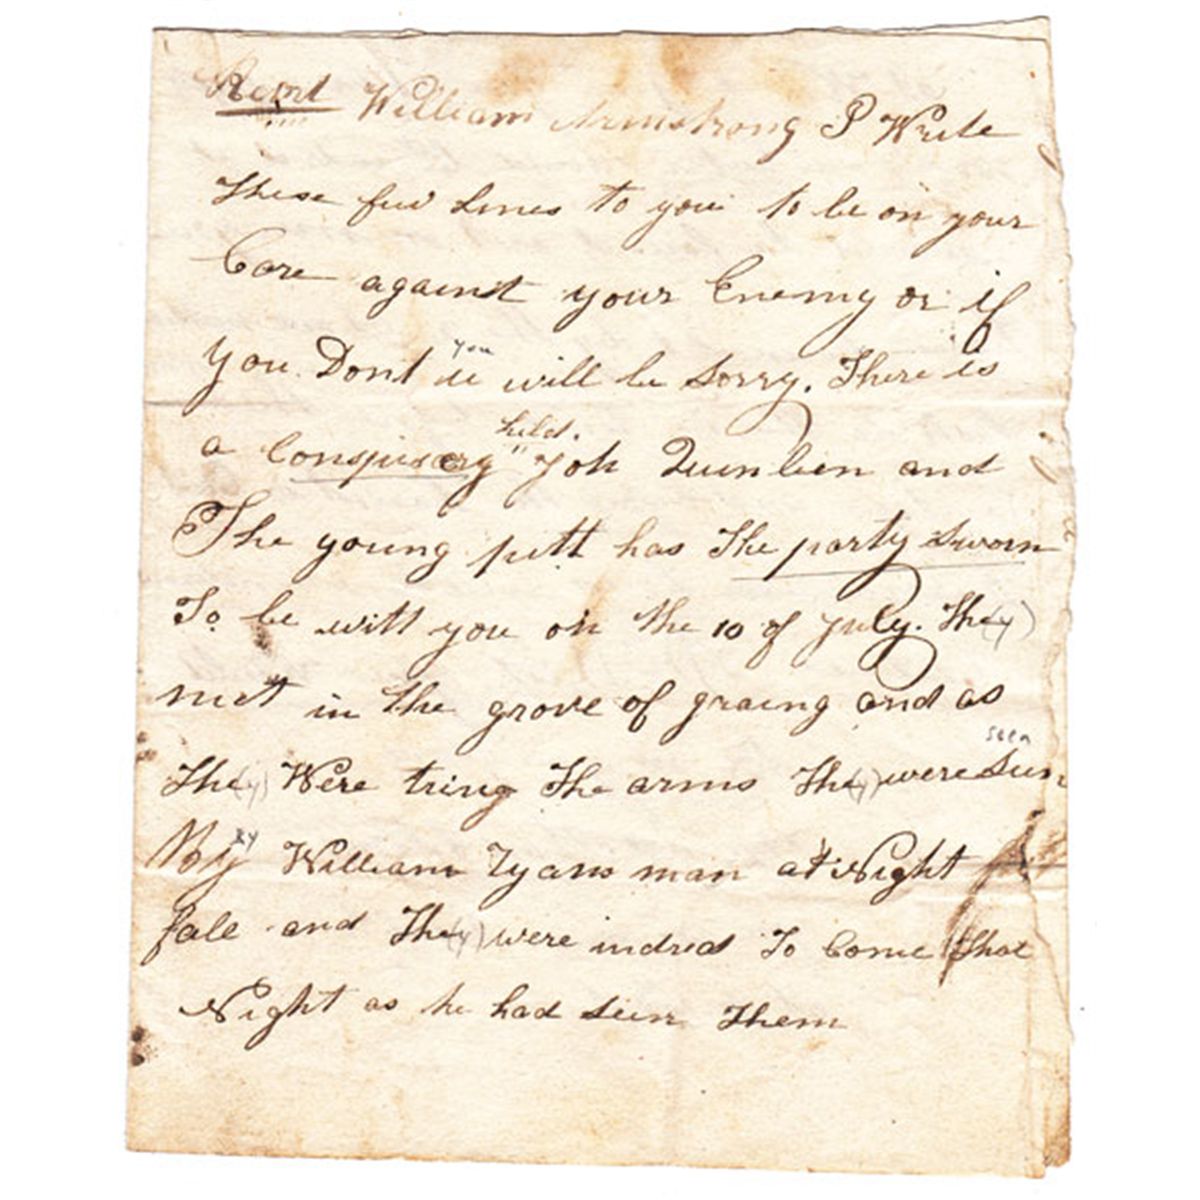 Remt William Armstrong I Write
These fui Lines to you to be on your
Care against your Enemy or if
you Dont u you will be Sorry. There is
a Conspisery " held. Joh Quinlien and
The young pitt has The party Sworn
To be witt you on the 10 of July. The(y)
met in the grove of graing and as
The(y) Were tring The arms The(y) were Seen seen
By By William Ryans man at Night
fale and The(y) were indred To Come that
Night as he had Seen Them